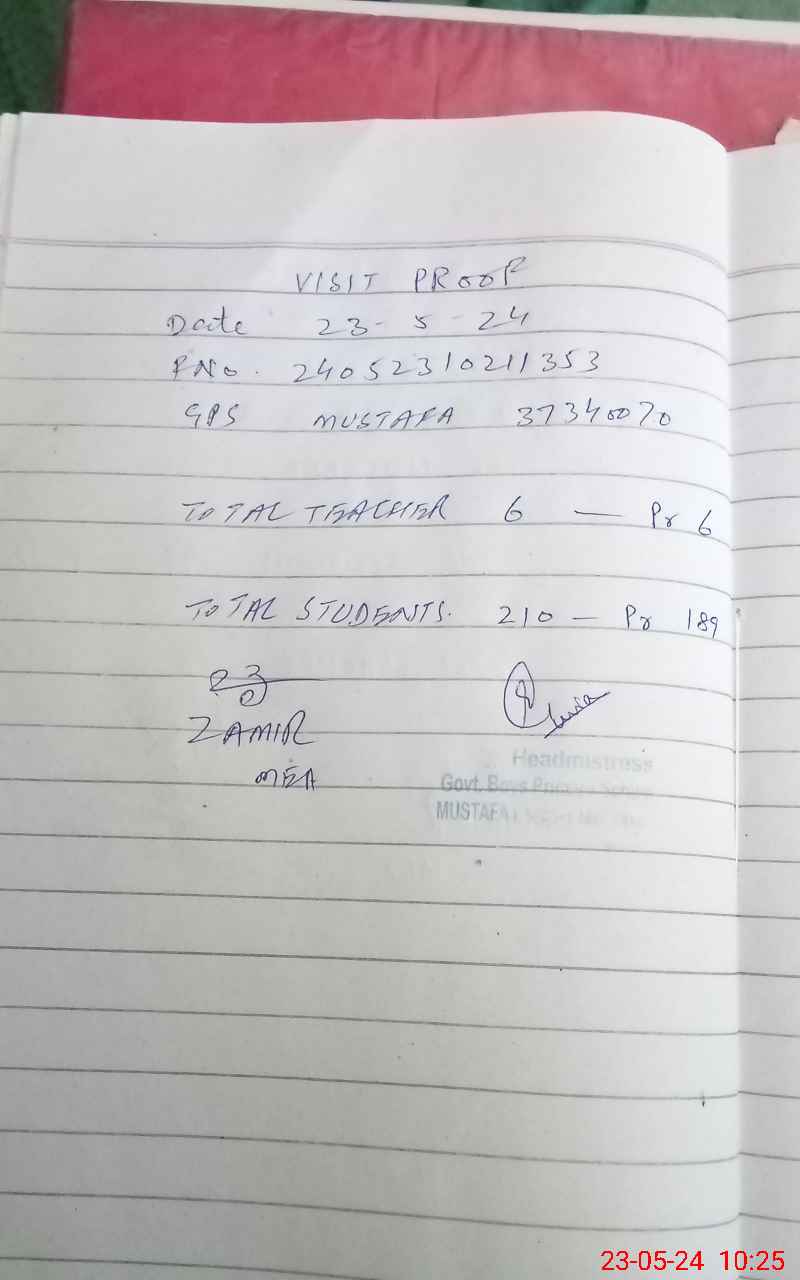 VISIT PROOF
Date 23-5-24
PNo. 24052310211353
GPS MUSTAFA 37340070
TOTAL TEACHER 6 — Pr 6
TOTAL STUDENTS. 210 — Pr 189
ZAMIR
MEA
Headmistress
Govt. Boys Primary School
MUSTAFA
23-05-24 10:25